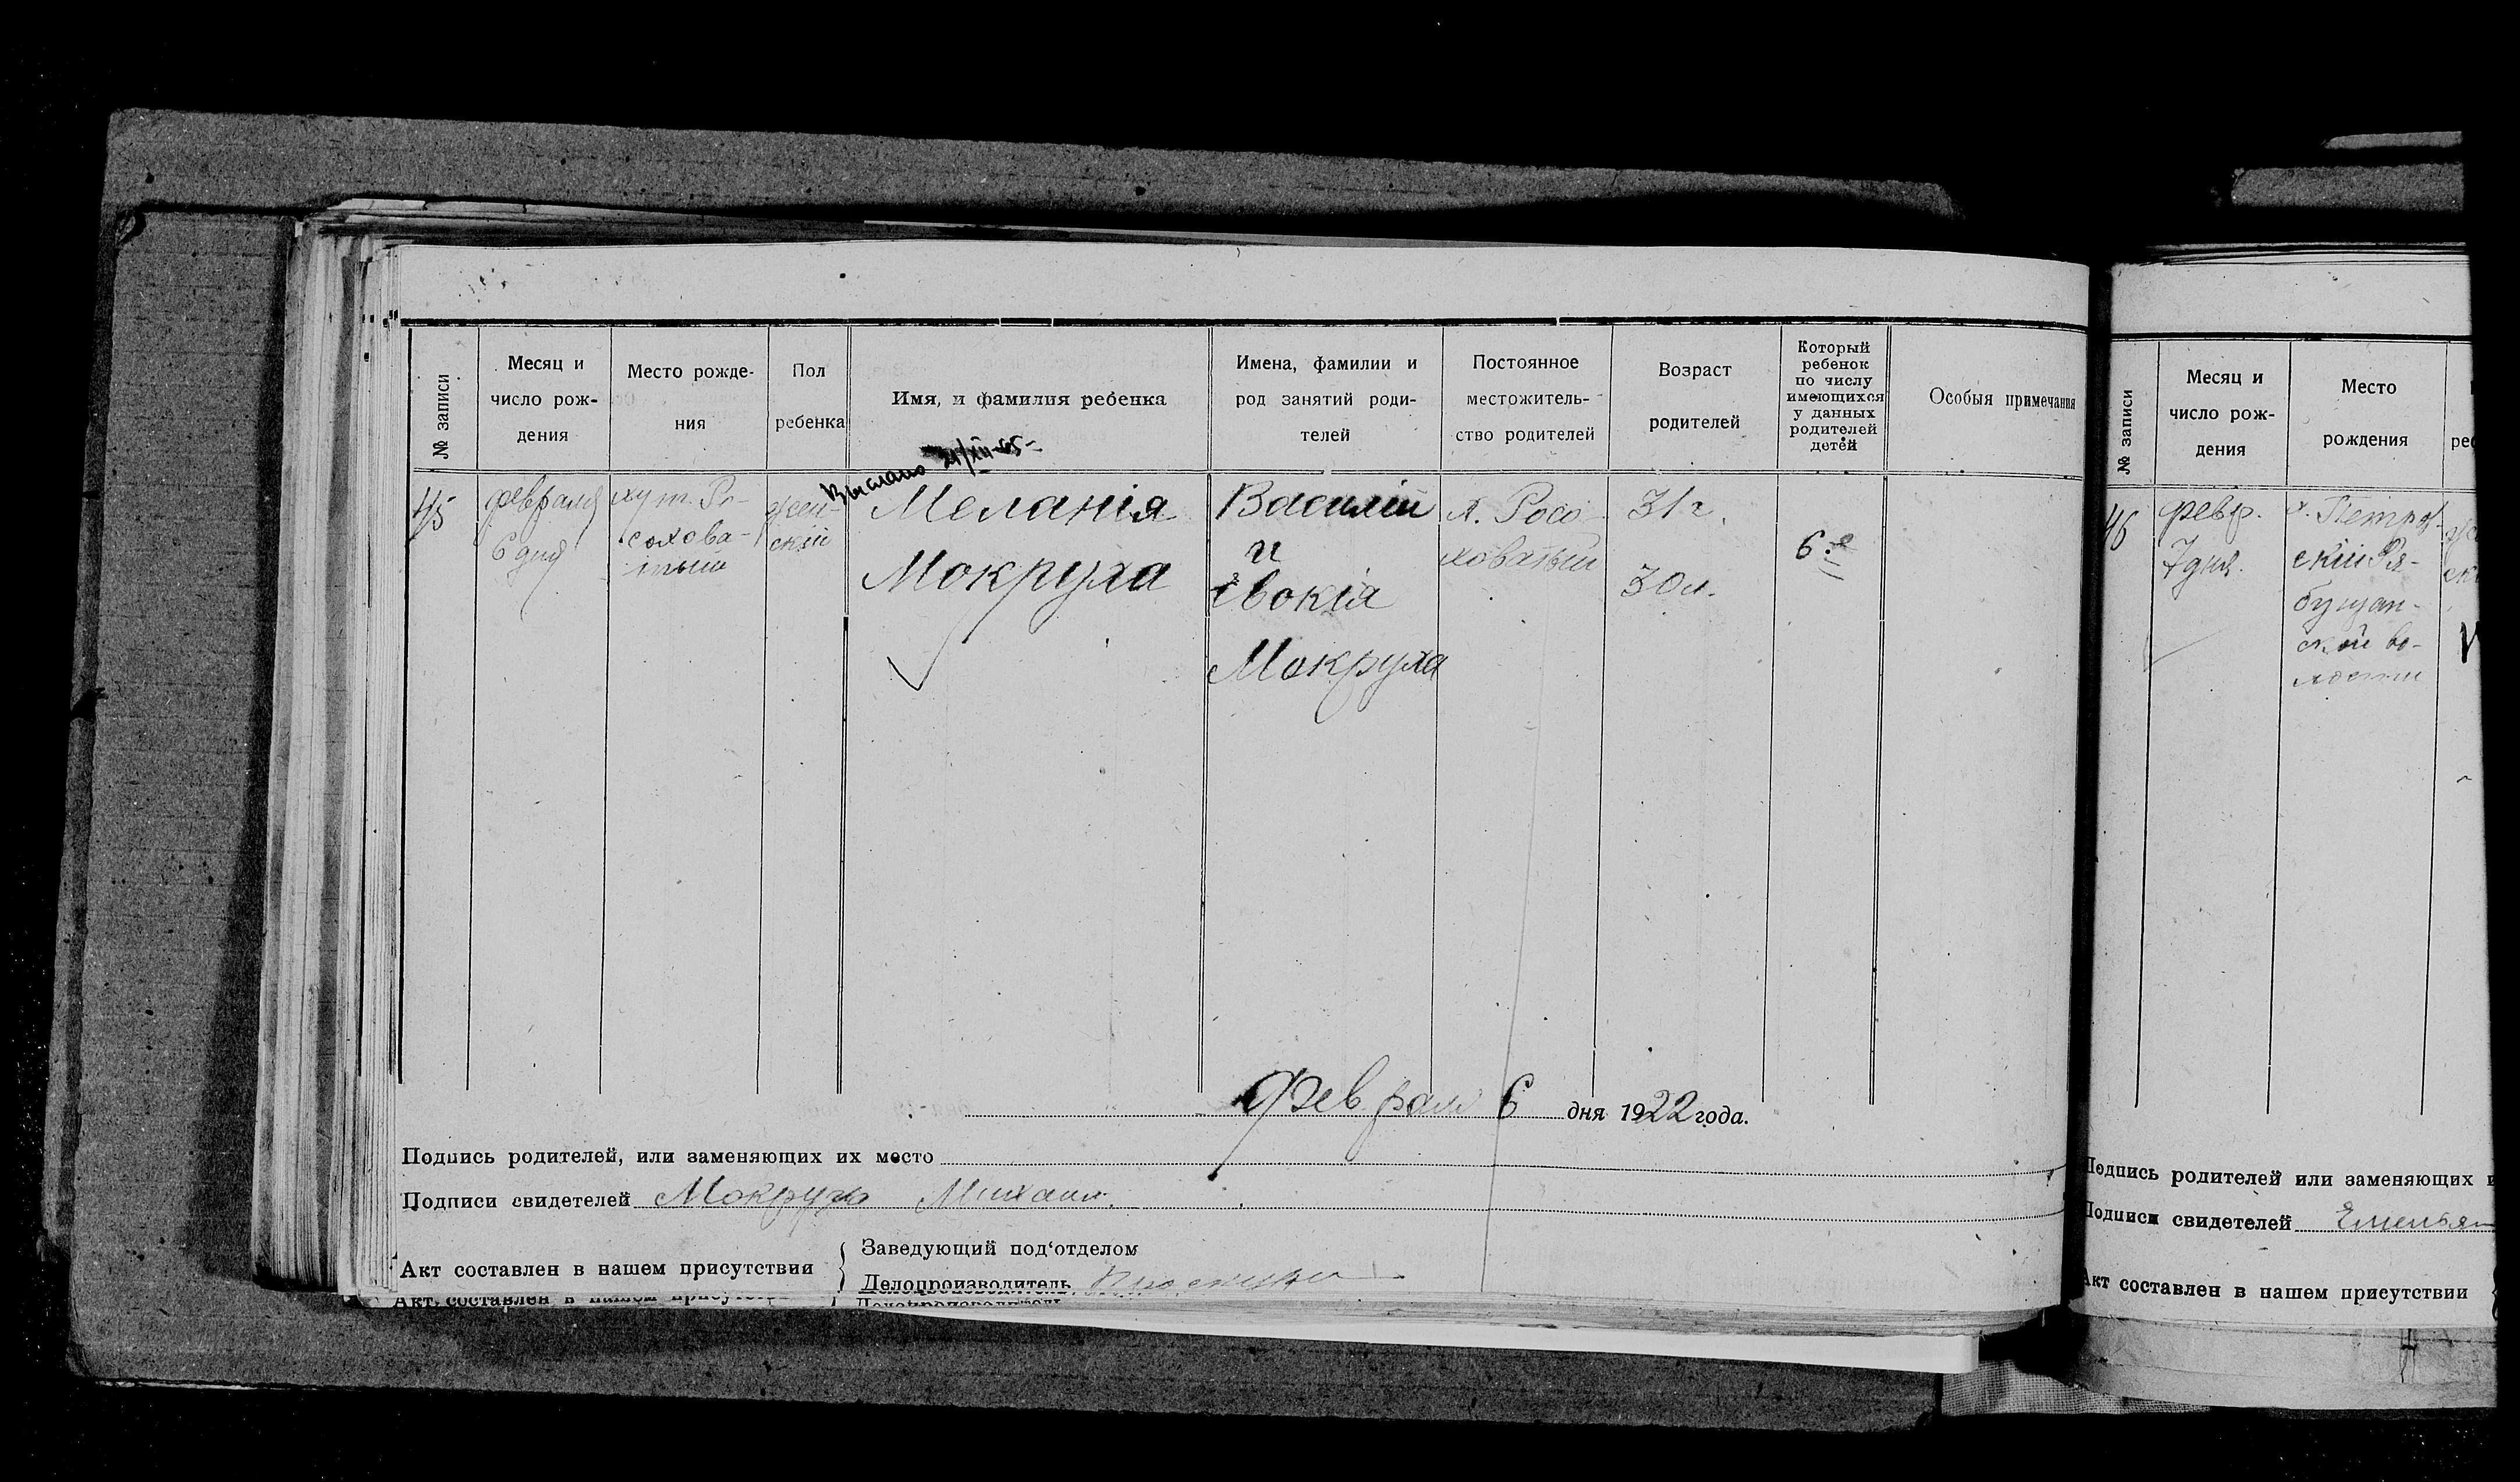 № записи
Месяц и
число рож-
дения
Место рожде-
ния
Пол
ребенка
Имя, и фамилия ребенка
Имена, фамилии и
род занятий роди-
телей
Постоянное
местожитель-
ство родителей
Возраст
родителей
Который
ребенок
по числу
имеющихся
у данных
родителей
детей
Особыя примечания
Выслано 21/XII-65-
45
февраля
6 дня
хут. Ро-
сохова-
тый
жен-
скій
Меланія
Мокруха
Василій
и
Евокія
Мокруха
х. Росо-
ховатый
31 г.
30 л.
6.е
Феврал 6 дня 1922 года.
Подпись родителей, или заменяющих их место
Подписи свидетелей Мокруха Михаил.
Акт составлен в нашем присутствии
Заведующий под'отделом
Делопроизводитель
Акт составлен в нашем присутствии
Делопроизводитель
№ записи
Месяц и
число рож-
дения
Место
рождения
реб
46
февр.
7 дня.
х. Петров-
скій Ря-
бушан-
ской во-
лости
Подпись родителей или заменяющих и
Подписи свидетелей Емельян
Акт составлен в нашем присутствии